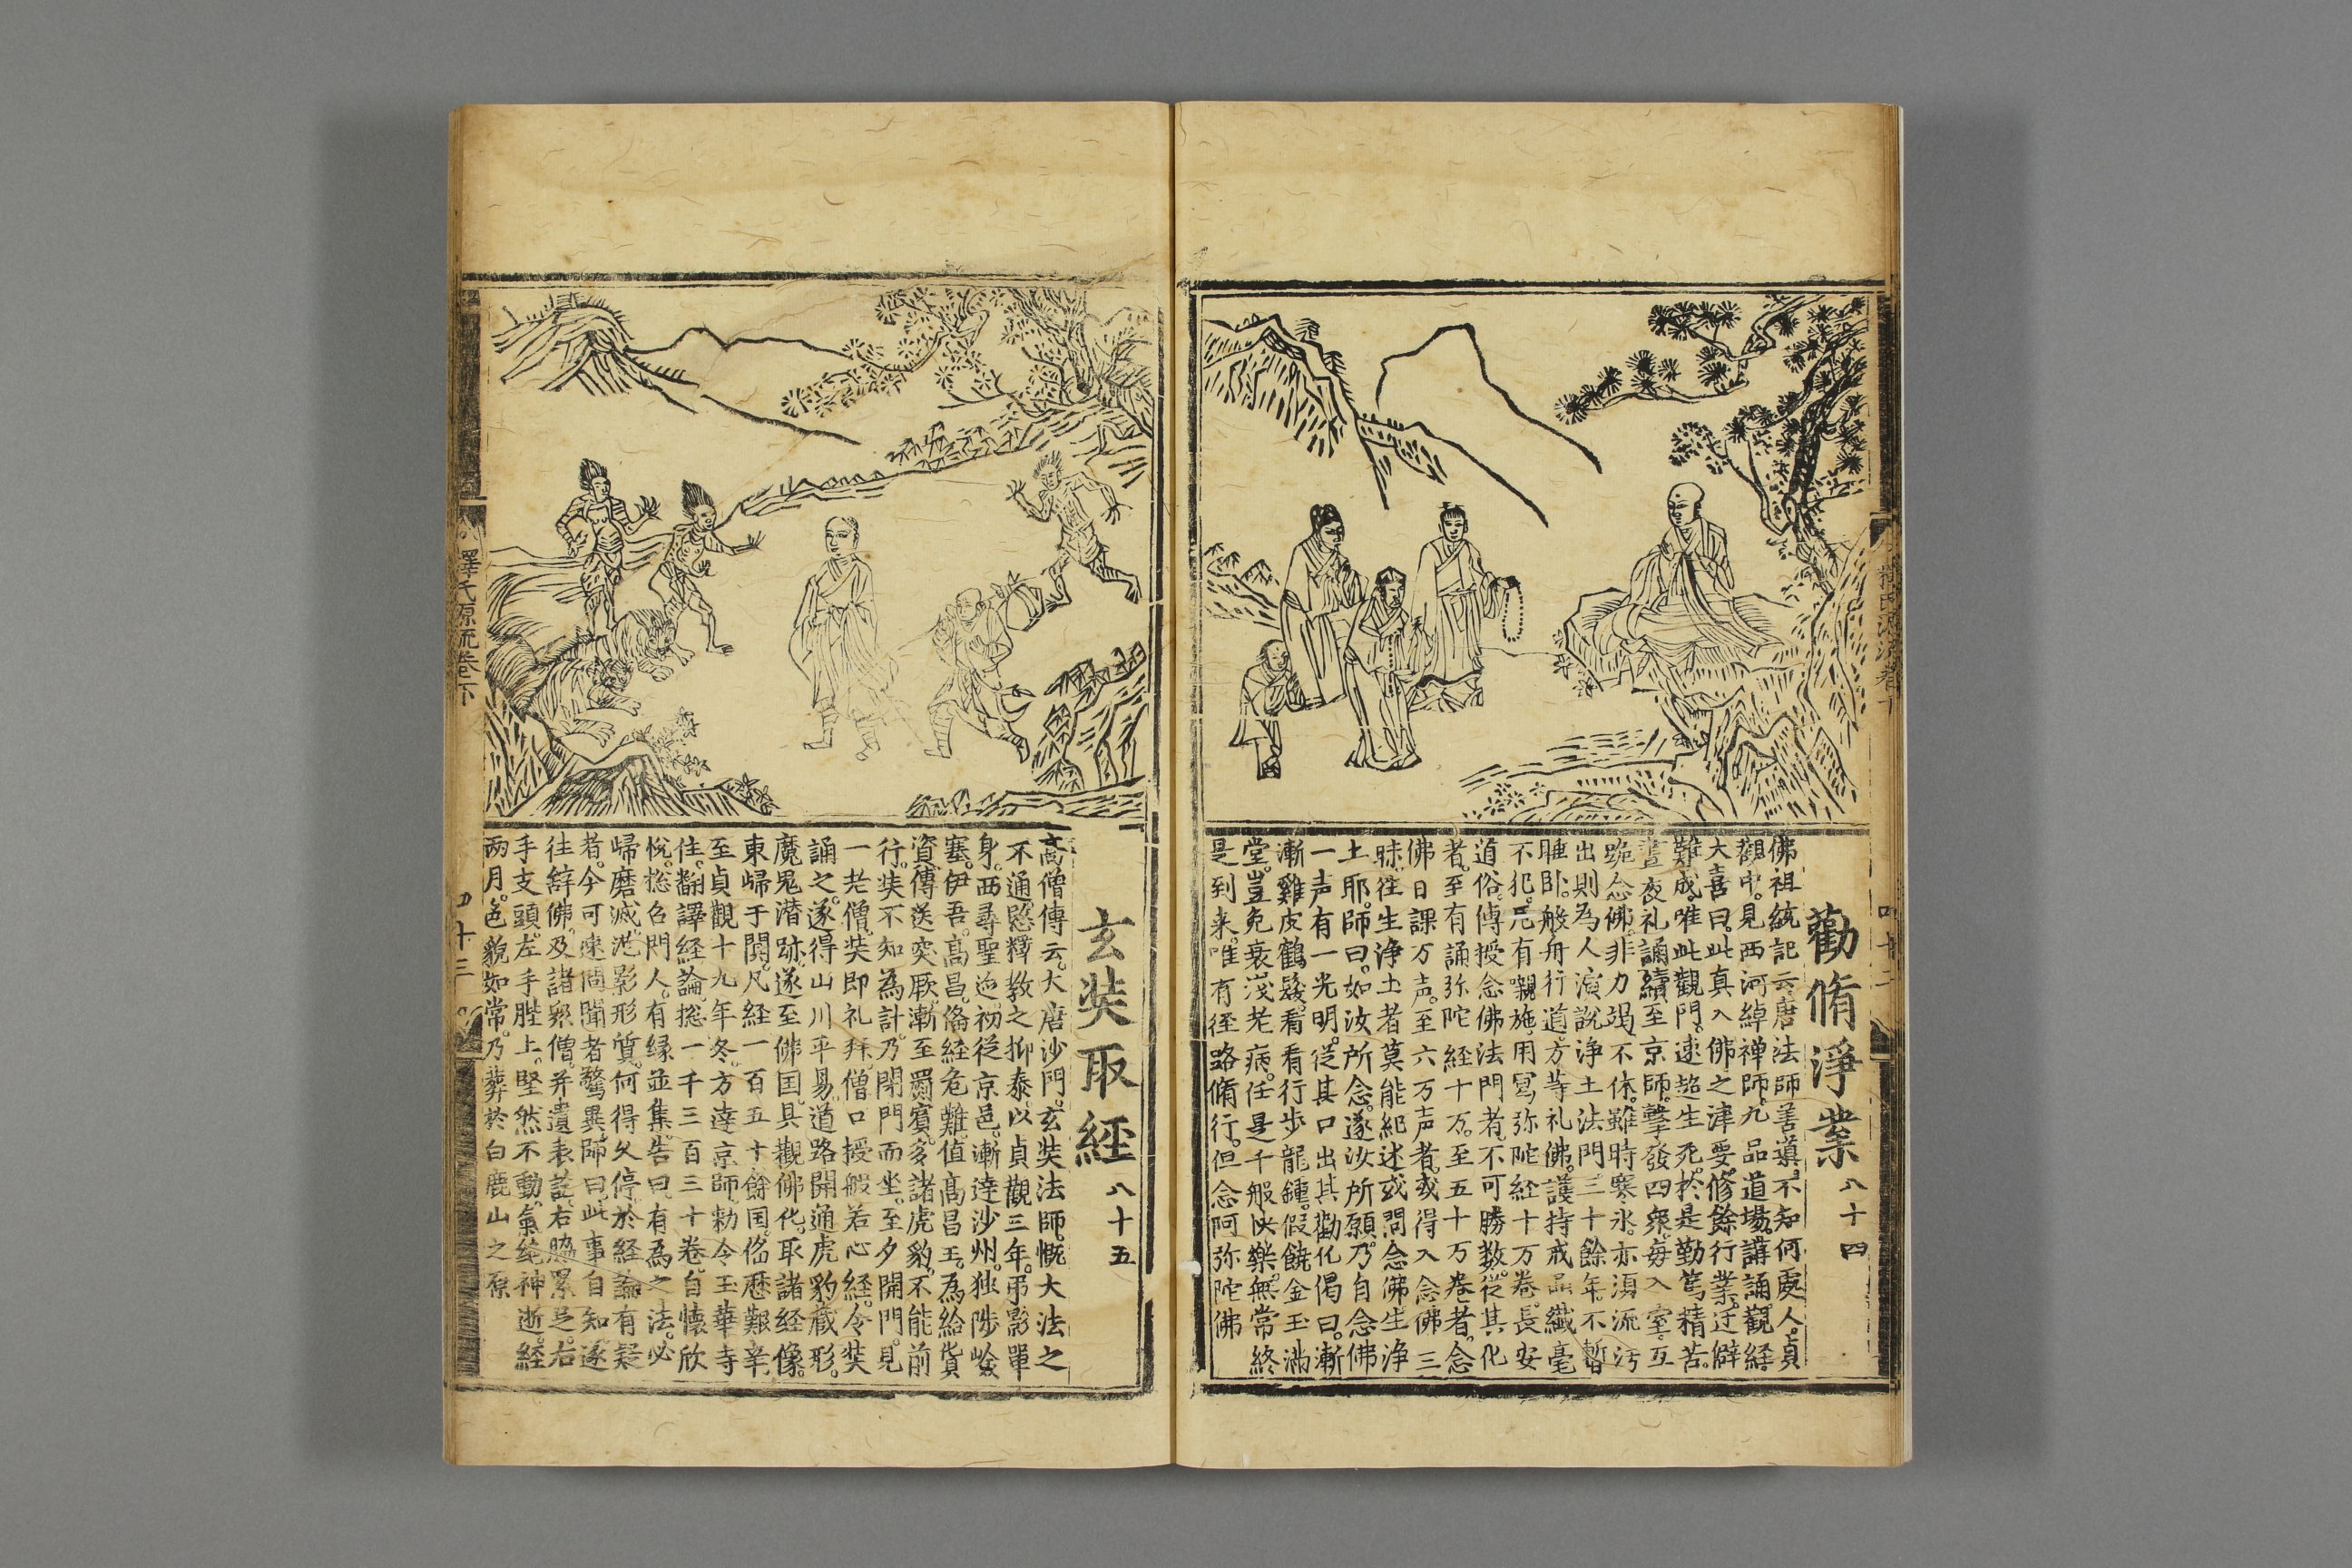 勸脩淨業 八十四
佛祖統記云唐法師善導不知何處人貞
觀中見西河綽禅師九品道場講誦觀経
大喜曰此真入佛之津要修餘行業迂僻
難成唯此觀門速超生死於是勤篤精苦
晝夜礼誦續至京師擊發四衆每入室互
跪念佛非力竭不休雖時寒氷亦須流汙
出則為人演說浄土法門三十餘年不暫
睡卧般舟行道方等礼佛護持戒品纖毫
不犯凡有嚫施用冩弥陀経十万卷長安
道俗傳授念佛法門者不可勝数從其化
者至有誦弥陀経十万至五十万卷者念
佛日課万声至六万声者或得入念佛三
昧往生浄土者莫能紀述或問念佛生浄
土耶師曰如汝所念遂汝所願乃自念佛
一声有一光明從其口出其勸化偈曰漸
漸雞皮鶴髮看看行步龍鍾假饒金玉满
堂豈免衰残老病任是千般快樂無常終
是到来唯有径路脩行但念阿弥陀佛
玄奘取經 八十五
高僧傳云大唐沙門玄奘法師慨大法之
不通愍釋教之抑泰以貞觀三年弔影單
身西尋聖迹初從京邑漸逹沙州独陟嶮
塞伊吾高昌俻経危難值高昌王為給貨
資傳送突厥漸至罽賓多諸虎豹不能前
行奘不知為計乃閉門而坐至夕開門見
一老僧奘即礼拜僧口授般若心経令奘
誦之遂得山川平易道路開通虎豹藏形
魔鬼潜跡遂至佛国具觀佛化取諸経像
東歸于闐凡経一百五十餘国俻歴艱辛
至貞觀十九年冬方逹京師勅令玉華寺
住翻譯経論㧾一千三百三十卷自懷欣
恱㧾召門人有縁並集告曰有為之法必
歸磨滅泡影形質何得久停於経論有疑
者今可速問聞者驚異師曰此事自知遂
往辞佛及諸衆僧并遺表訖右脇累足右
手支頭左手䏶上堅然不動氣絶神逝経
两月色貌如常乃葬於白鹿山之原
釋氏源流卷下
四十三